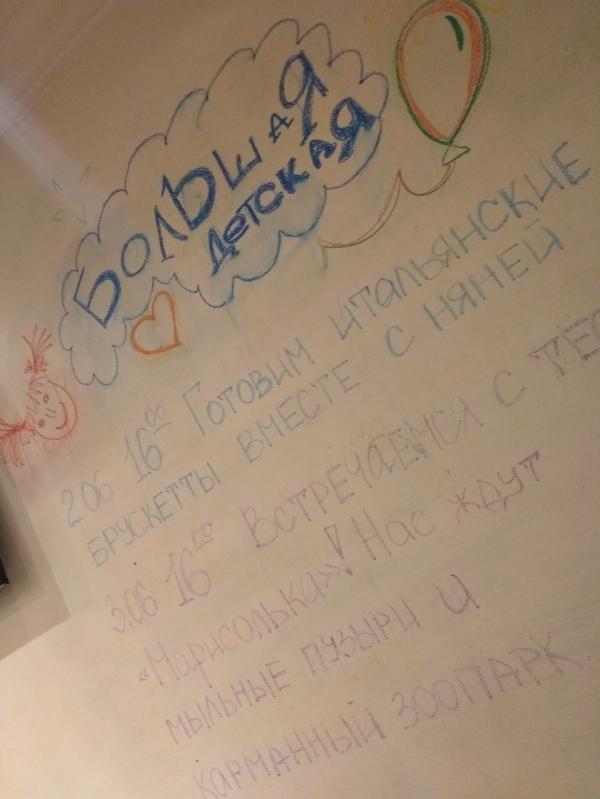 БОЛЬШАЯ
ДЕТСКАЯ
2.06 16⁰⁰ Готовим итальянские
брускетты вместе с няней
3.06 16⁰⁰ Встречаемся с
«Марисолька»! Нас ждут
мыльные пузыри и
карманный зоопарк